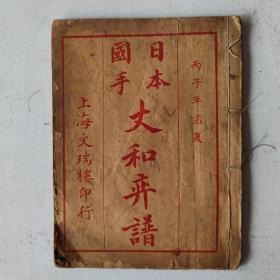 丙子年孟夏
日本國手
丈和弈譜
上海文瑞樓印行